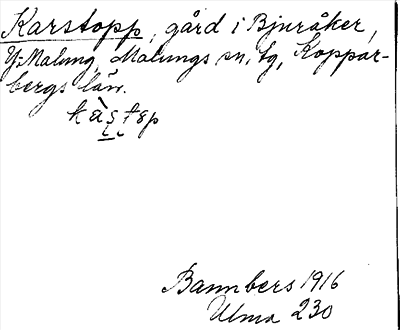 Karstopp, gård i Bjuråker,
Y. Malung, Malungs sn, tg, Koppar-
bergs län.
Bannbers 1916
Ulma 230